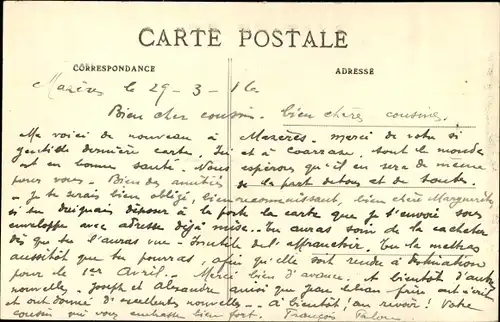 CARTE POSTALE
CORRESPONDANCE
ADRESSE
Mazères le 29-3-16
Bien cher cousin, bien chères cousines,
Me voici de nouveau à Mazères. merci de votre si
gentille dernière carte. Ici et à Coarraze, tout le monde
est en bonne santé. Nous espérons qu'il en sera de même
pour vous. Bien des amitiés de la part de tous et de toutes.
- Je te serais bien obligé, bien reconnaissant, bien chère Marguerite,
si tu daignais déposer à la poste la carte que je t'envoie sous
enveloppe avec adresse déjà mise. Tu auras soin de la cacheter
dès que tu l'auras vue - Inutile de l'affranchir. Tu la mettras
aussitôt que tu pourras, afin qu'elle soit rendue à destination
pour le 1er Avril. - Merci bien d'avance. A bientôt d'autres
nouvelles. Joseph et Alexandre ainsi que Jean ont écrit
et ont donné d'excellentes nouvelles. - A bientôt! au revoir! Votre
cousin qui vous embrasse bien fort. François